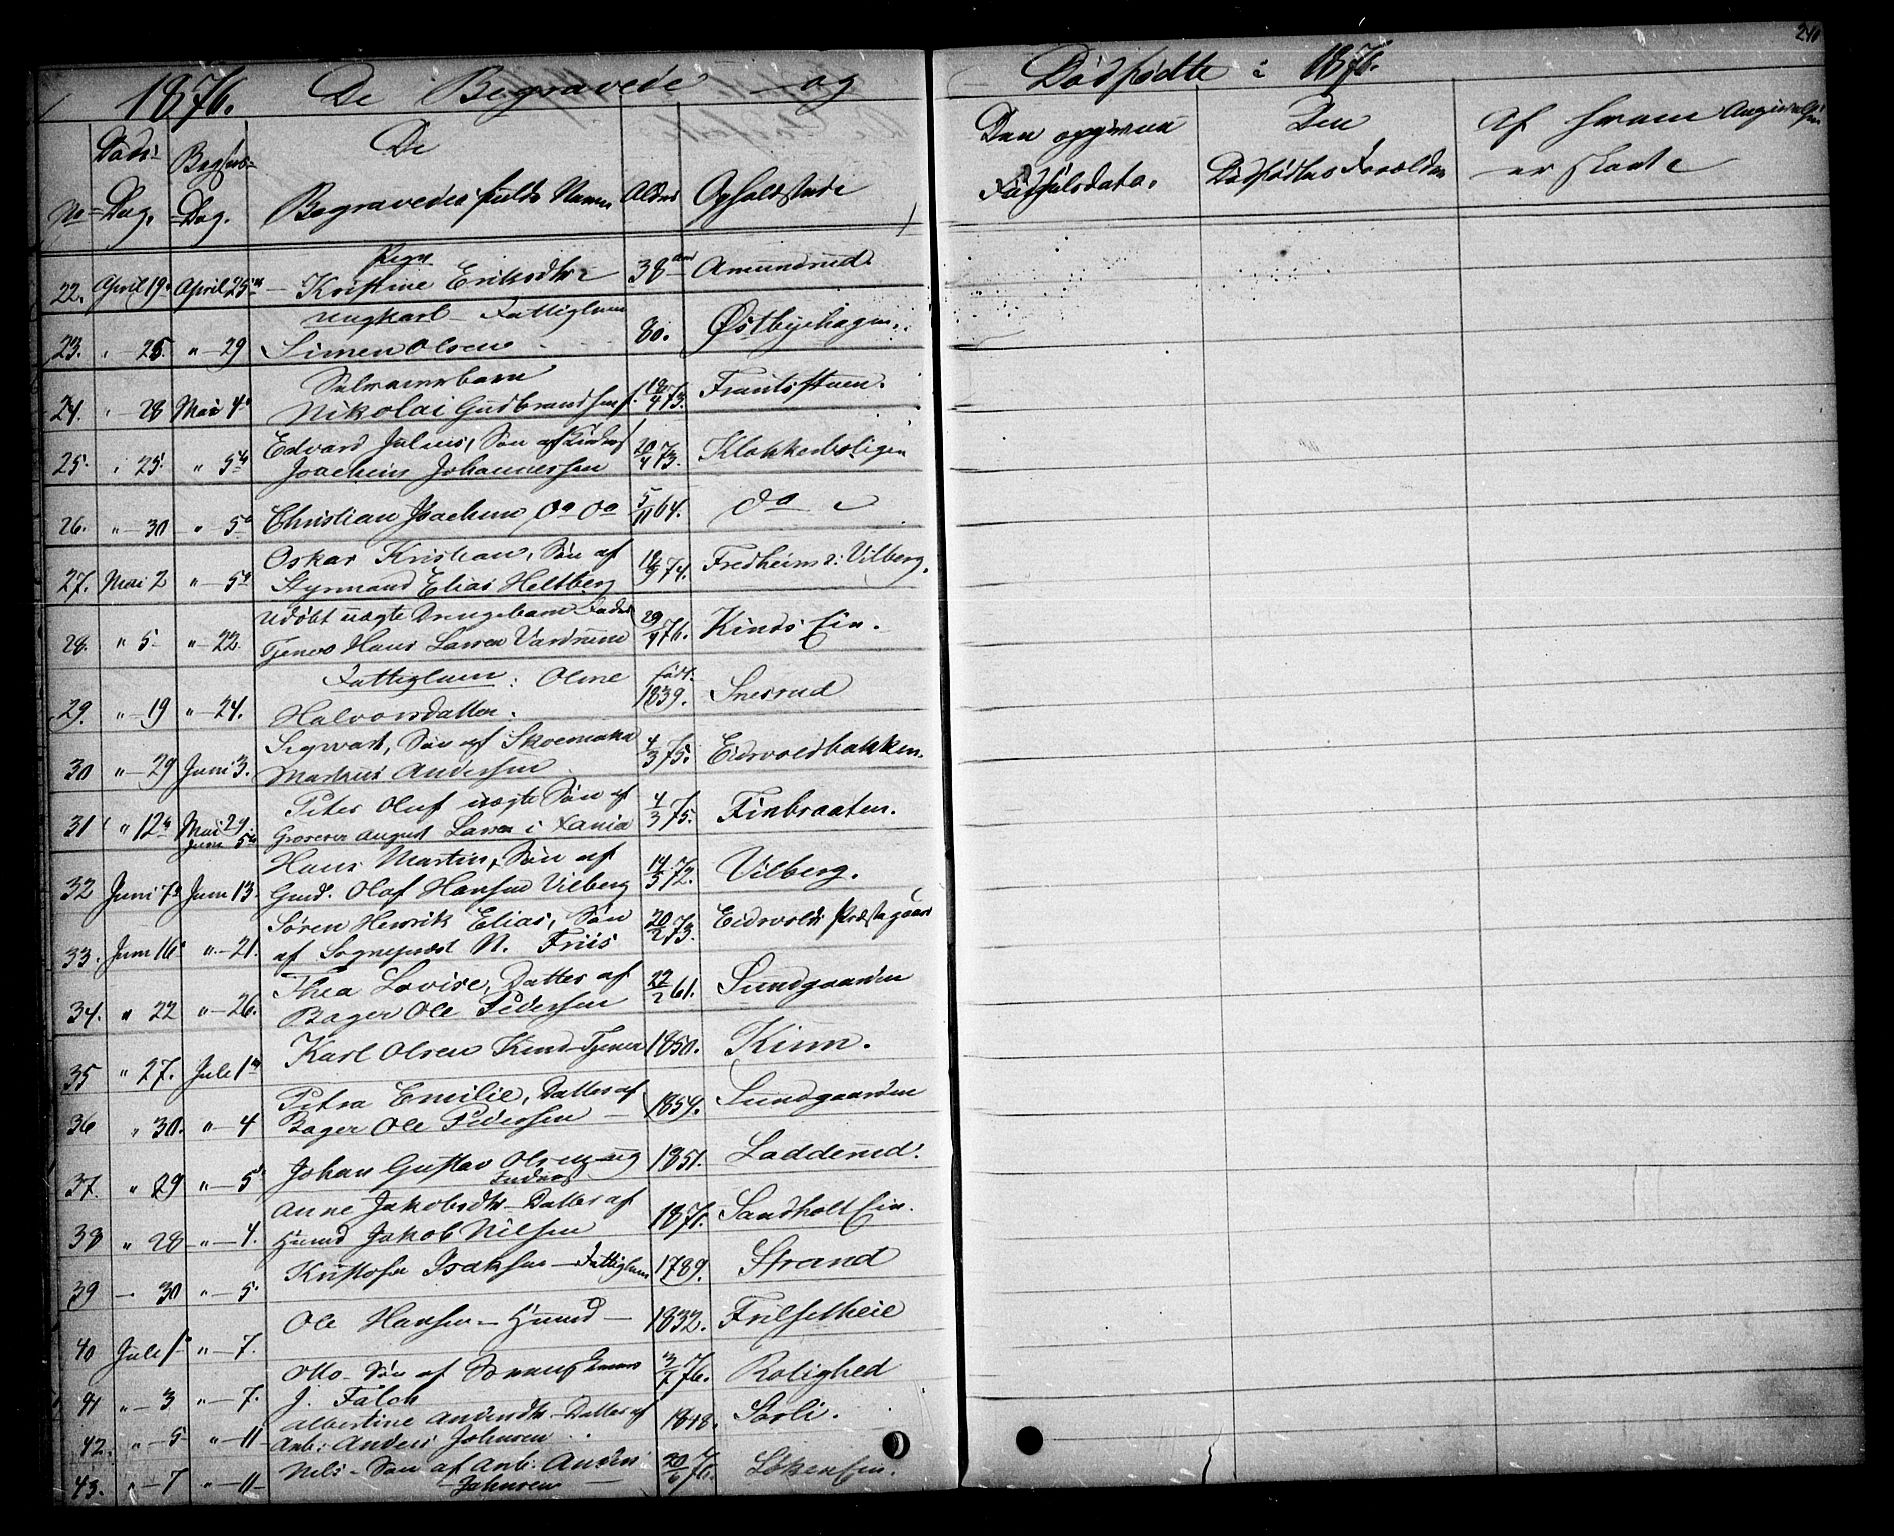 1876. De Begravede og Dødfødte i 1876. 240
No Døds-Dag. Begravs-Dag. De Begravedes fulde Navne Alder Opholdstæde
Den opgivne Fødselsdata. Den Dødfødtes Forældre Af hvem Angivelsen er skeet
Pige
22. April 19. April 25 Kristine Eriksdtr 38 Amundrud.
Ungkarl Fattiglem
23. " 25 " 29 Simen Olsen 80. Østbyehagen.
Selveierbarn
24. " 28 Mai 4 Nikolai Gudbrandsen 18/4 73. Frantsstuen.
Edvard Julius, Søn af
25. " 25. " 5 Joachim Johannessen 20/4 73. Klokkerboligen
26. " 30 " 5 Christian Joachim Do Do 5/11 64. Do
Oskar Kristian, Søn af
27. Mai 2 " 5 Styrmand Elias Heltberg 18/9 74. Fredheim v: Vilberg.
Udøbt uægte Drengebarn Fader
28. " 5 " 22. Tjener Hans Larsen Vardrum 29/4 76. Kinds Ein.
Fattiglem: Oline født
29. " 19 " 24. Halvorsdatter. 1839. Snesrud
Sigvart, Søn af Skoemaker
30 " 29 Juni 3. Markus Andersen 4/3 75. Eidsvoldbakken.
Peter Oluf uægte Søn af
31 " 12 Mai 29 Juni 5 Grosserer August Larsen i Xania 4/3 75. Finbraaten.
Hans Martin, Søn af
32 Juni 7 Juni 13. Gmd. Olaf Hansen Vilberg 14/3 72. Vilberg.
Søren Henrik Elias, Søn
33. Juni 16 " 21. af Sognepræst N. Friis 20/2 73. Eidsvolds Præstegaard
Thea Lovise, Datter af
34. " 22 " 26. Bager Ole Pedersen 22/2 61. Sundgaarden
35 " 27. Juli 1 Karl Olsen Kind Tjener 1850. Kinn.
Petra Emilie, Datter af
36 " 30. " 4 Bager Ole Pedersen 1859. Sundgaarden
37. " 29 " 5 Johan Gustav Olsen ug Inderst 1851. Ladderud.
Anne Jakobsdtr Datter af
38 " 28 " 4. Huusmd Jakob Nilsen 1871. Sandholt Ein.
39 30 " 5. Kristofer Isaksen Fattiglem 1789. Strand
40 Juli 1 " 7. Ole Hansen Huusmd 1832. Frilsetheie
Otto Søn af
41 " 3 " 7. J. Falch 3/7 76. Rolighed
Albertine Andersdtr Datter af
42. " 5 " 11 Arb: Anders Johnsen 1848. Sorli.
Nils Søn af Arb: Anders
43. " 7 " 11 Johnsen 20/6 76. Løken Ein.